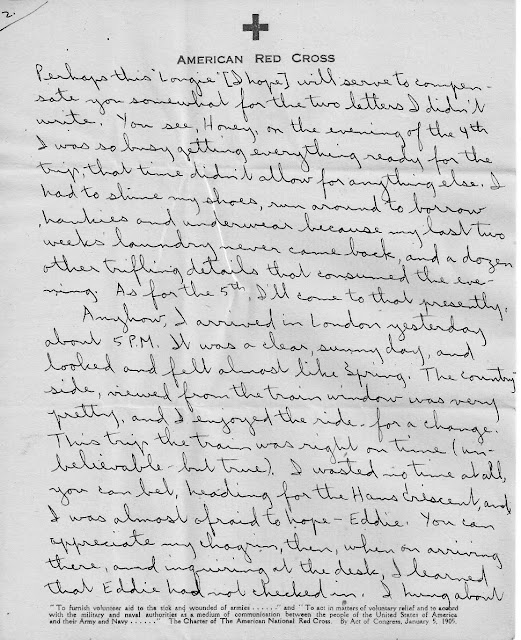 2.
AMERICAN RED CROSS
Perhaps this "Longie" [I hope] will serve to compen-
sate you somewhat for the two letters I didn't
write. You see, Honey, on the evening of the 4th
I was so busy getting everything ready for the
trip, that time didn't allow for anything else. I
had to shine my shoes, run around to borrow
hankies and underwear because my last two
weeks' laundry never came back, and a dozen
other trifling details that consumed the eve-
ning. As for the 5th, I'll come to that presently.
Anyhow, I arrived in London yesterday
about 5 P.M. It was a clear, sunny day, and
looked and felt almost like Spring. The country
side, viewed from the train window was very
pretty, and I enjoyed the ride - for a change.
This trip the train was right on time (un-
believable - but true). I wasted no time at all,
you can bet, heading for the Hans Crescent, and
I was almost afraid to hope - Eddie. You can
appreciate my chagrin, then, when on arriving
there, and inquiring at the desk, I learned
that Eddie had not checked in. I hung about
"To furnish volunteer aid to the sick and wounded of armies . . . . . ." and "To act in matters of voluntary relief and in accord
with the military and naval authorities as a medium of communication between the people of the United States of America
and their Army and Navy . . . . . ." The Charter of The American National Red Cross. By Act of Congress, January 5, 1905.